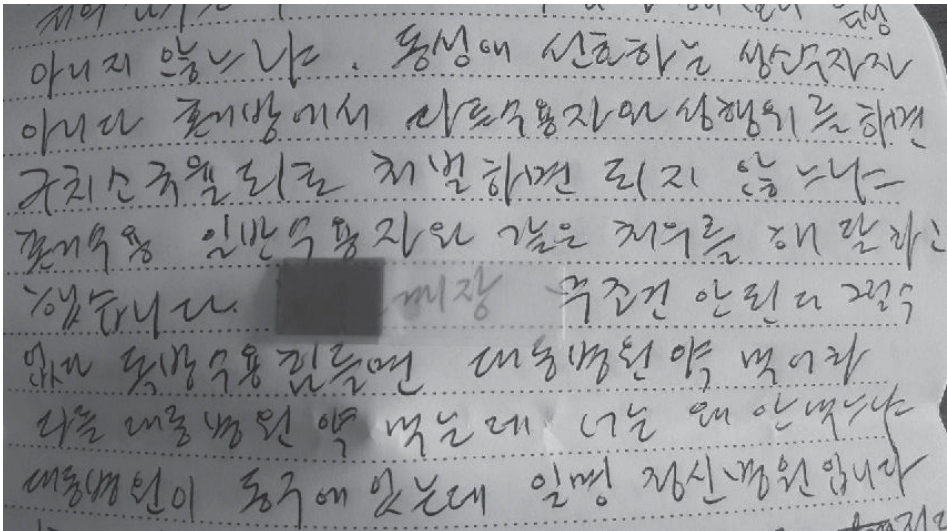 아니지 않느냐. 동성애 선호하는 생수자지
아니다 혼거방에서 다른수용자와 성행위를 하면
규칙으로 처벌하면 되지 않느냐
혼거수용 일반수용자와 같은 처우를 해 달라고
했습니다. 계장 무조건 안된다 그럴수
없다 독방수용 힘들면 대동병원 약 먹어라
다들 대동병원 약 먹는데 너는 왜 안먹느냐
대동병원이 동구에 있는데 일명 정신병원입니다